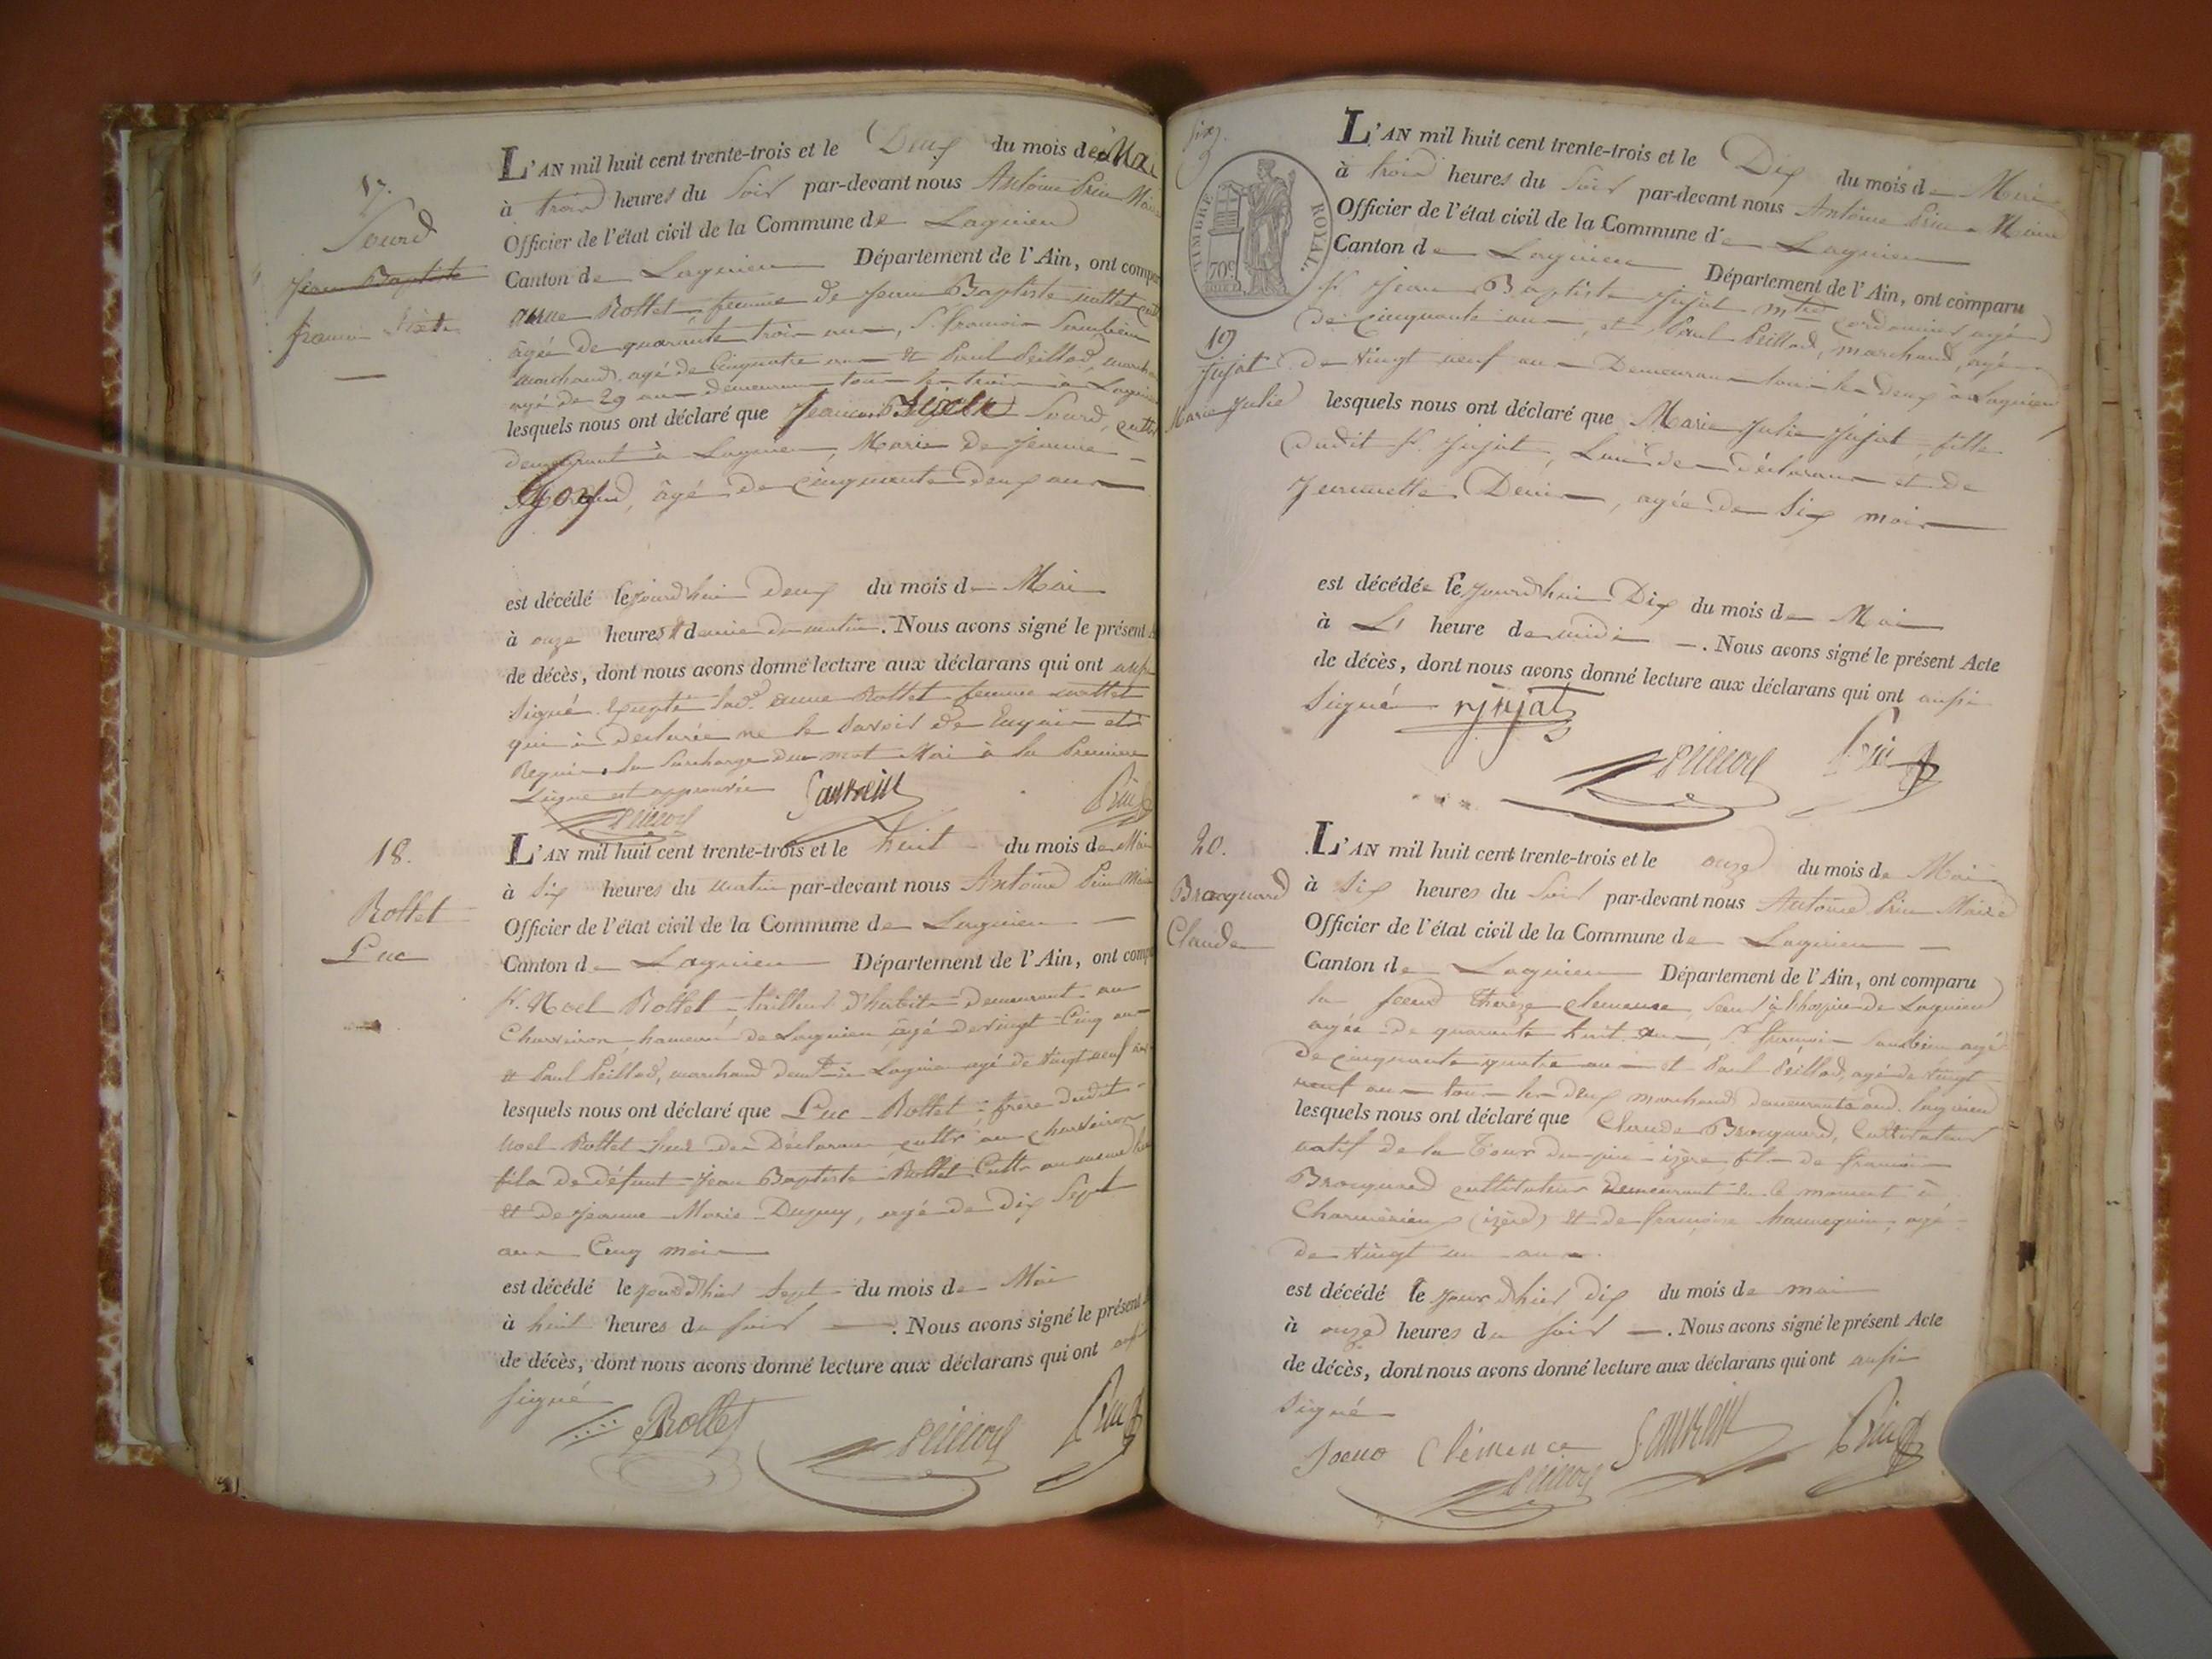 17.
Sourd
Jean Baptiste
L'AN mil huit cent trente-trois et le Deux du mois de Mai
à trois heures du Soir par-devant nous Antoine Maire
Officier de l'état civil de la Commune de Lagnieu
Canton de Lagnieu Département de l'Ain, ont comparu
anne Rollet femme de Jean Baptiste
âgée de quarante trois ans, Sr. françois
marchand, agé de Cinquante ans & Paul Peillod, marchand
agé de 29 ans demeurans tous les trois à Lagnieu
lesquels nous ont déclaré que Sourd,
demeurant à Lagnieu, Marie de Jeanne
âgé de cinquante deux ans
est décédé le jourdhui Deux du mois de Mai
à onze heures & demie du matin. Nous avons signé le présent
de décès, dont nous avons donné lecture aux déclarans qui ont aussi
signé Excepté lad. anne Rollet femme
qui a déclarée ne le savoir de Enquise et
Requise. La Surcharge du mot Mai à la Premiere
Ligne est approuvée
18.
Rollet
Luc
L'AN mil huit cent trente-trois et le huit du mois de Mai
à Six heures du matin par-devant nous Antoine Maire
Officier de l'état civil de la Commune de Lagnieu
Canton de Lagnieu Département de l'Ain, ont comparu
Sr. Noel Rollet tailleur d'habits demeurant au
Charveiron, hameau de Lagnieu, âgé de vingt Cinq ans
& Paul Peillod, marchand demt. à Lagnieu agé de vingt neuf ans
lesquels nous ont déclaré que Luc Rollet frère dudit
Noel Rollet l'un des Déclarans, cultr. au Charveiron
fils de défunt Jean Baptiste Rollet Cultr. au même lieu
& de Jeanne Marie Duguy, agé de dix Sept
ans Cinq mois
est décédé le jourd'hier Sept du mois de Mai
à huit heures du soir. Nous avons signé le présent
de décès, dont nous avons donné lecture aux déclarans qui ont aussi
signé
Rollet
six.
9
TIMBRE ROYAL.
70c
19
Jujat
Marie Julie
L'AN mil huit cent trente-trois et le Dix du mois de Mai
à trois heures du Soir par-devant nous Antoine Maire
Officier de l'état civil de la Commune de Lagnieu
Canton de Lagnieu Département de l'Ain, ont comparu
Sr. Jean Baptiste Jujat mtre Cordonnier agé
de Cinquante ans, et Paul Peillod, marchand, agé
de Vingt neuf ans Demeurans tous les deux à Lagnieu
lesquels nous ont déclaré que Marie Julie Jujat, fille
dudit Sr. Jujat, L'un des déclarans et de
Jeannette Denis, agée de Six mois
est décédée le jourdhui Dix du mois de Mai
à L' heure de midi. Nous avons signé le présent Acte
de décès, dont nous avons donné lecture aux déclarans qui ont aussi
Signé Jujat
20.
Bracquard
Claude
L'AN mil huit cent trente-trois et le onze du mois de Mai
à Six heures du Soir par-devant nous Antoine Maire
Officier de l'état civil de la Commune de Lagnieu
Canton de Lagnieu Département de l'Ain, ont comparu
la Soeur Thereze Clemence, Soeur à l'hospice de Lagnieu
agée de quarante huit ans, Sr. françois agé
de cinquante quatre ans et Paul Peillod, agé de vingt
neuf ans tous les deux marchands demeurants aud. Lagnieu
lesquels nous ont déclaré que Claude Bracquard, Cultivateur
natif de la Tour du pin isère, fils de françois
Bracquard cultivateur demeurant en ce moment à
(izère) & de françoise agé
de vingt un ans.
est décédé le jourdhier dix du mois de mai
à onze heures du soir. Nous avons signé le présent Acte
de décès, dont nous avons donné lecture aux déclarans qui ont aussi
signé
Soeur Clémence